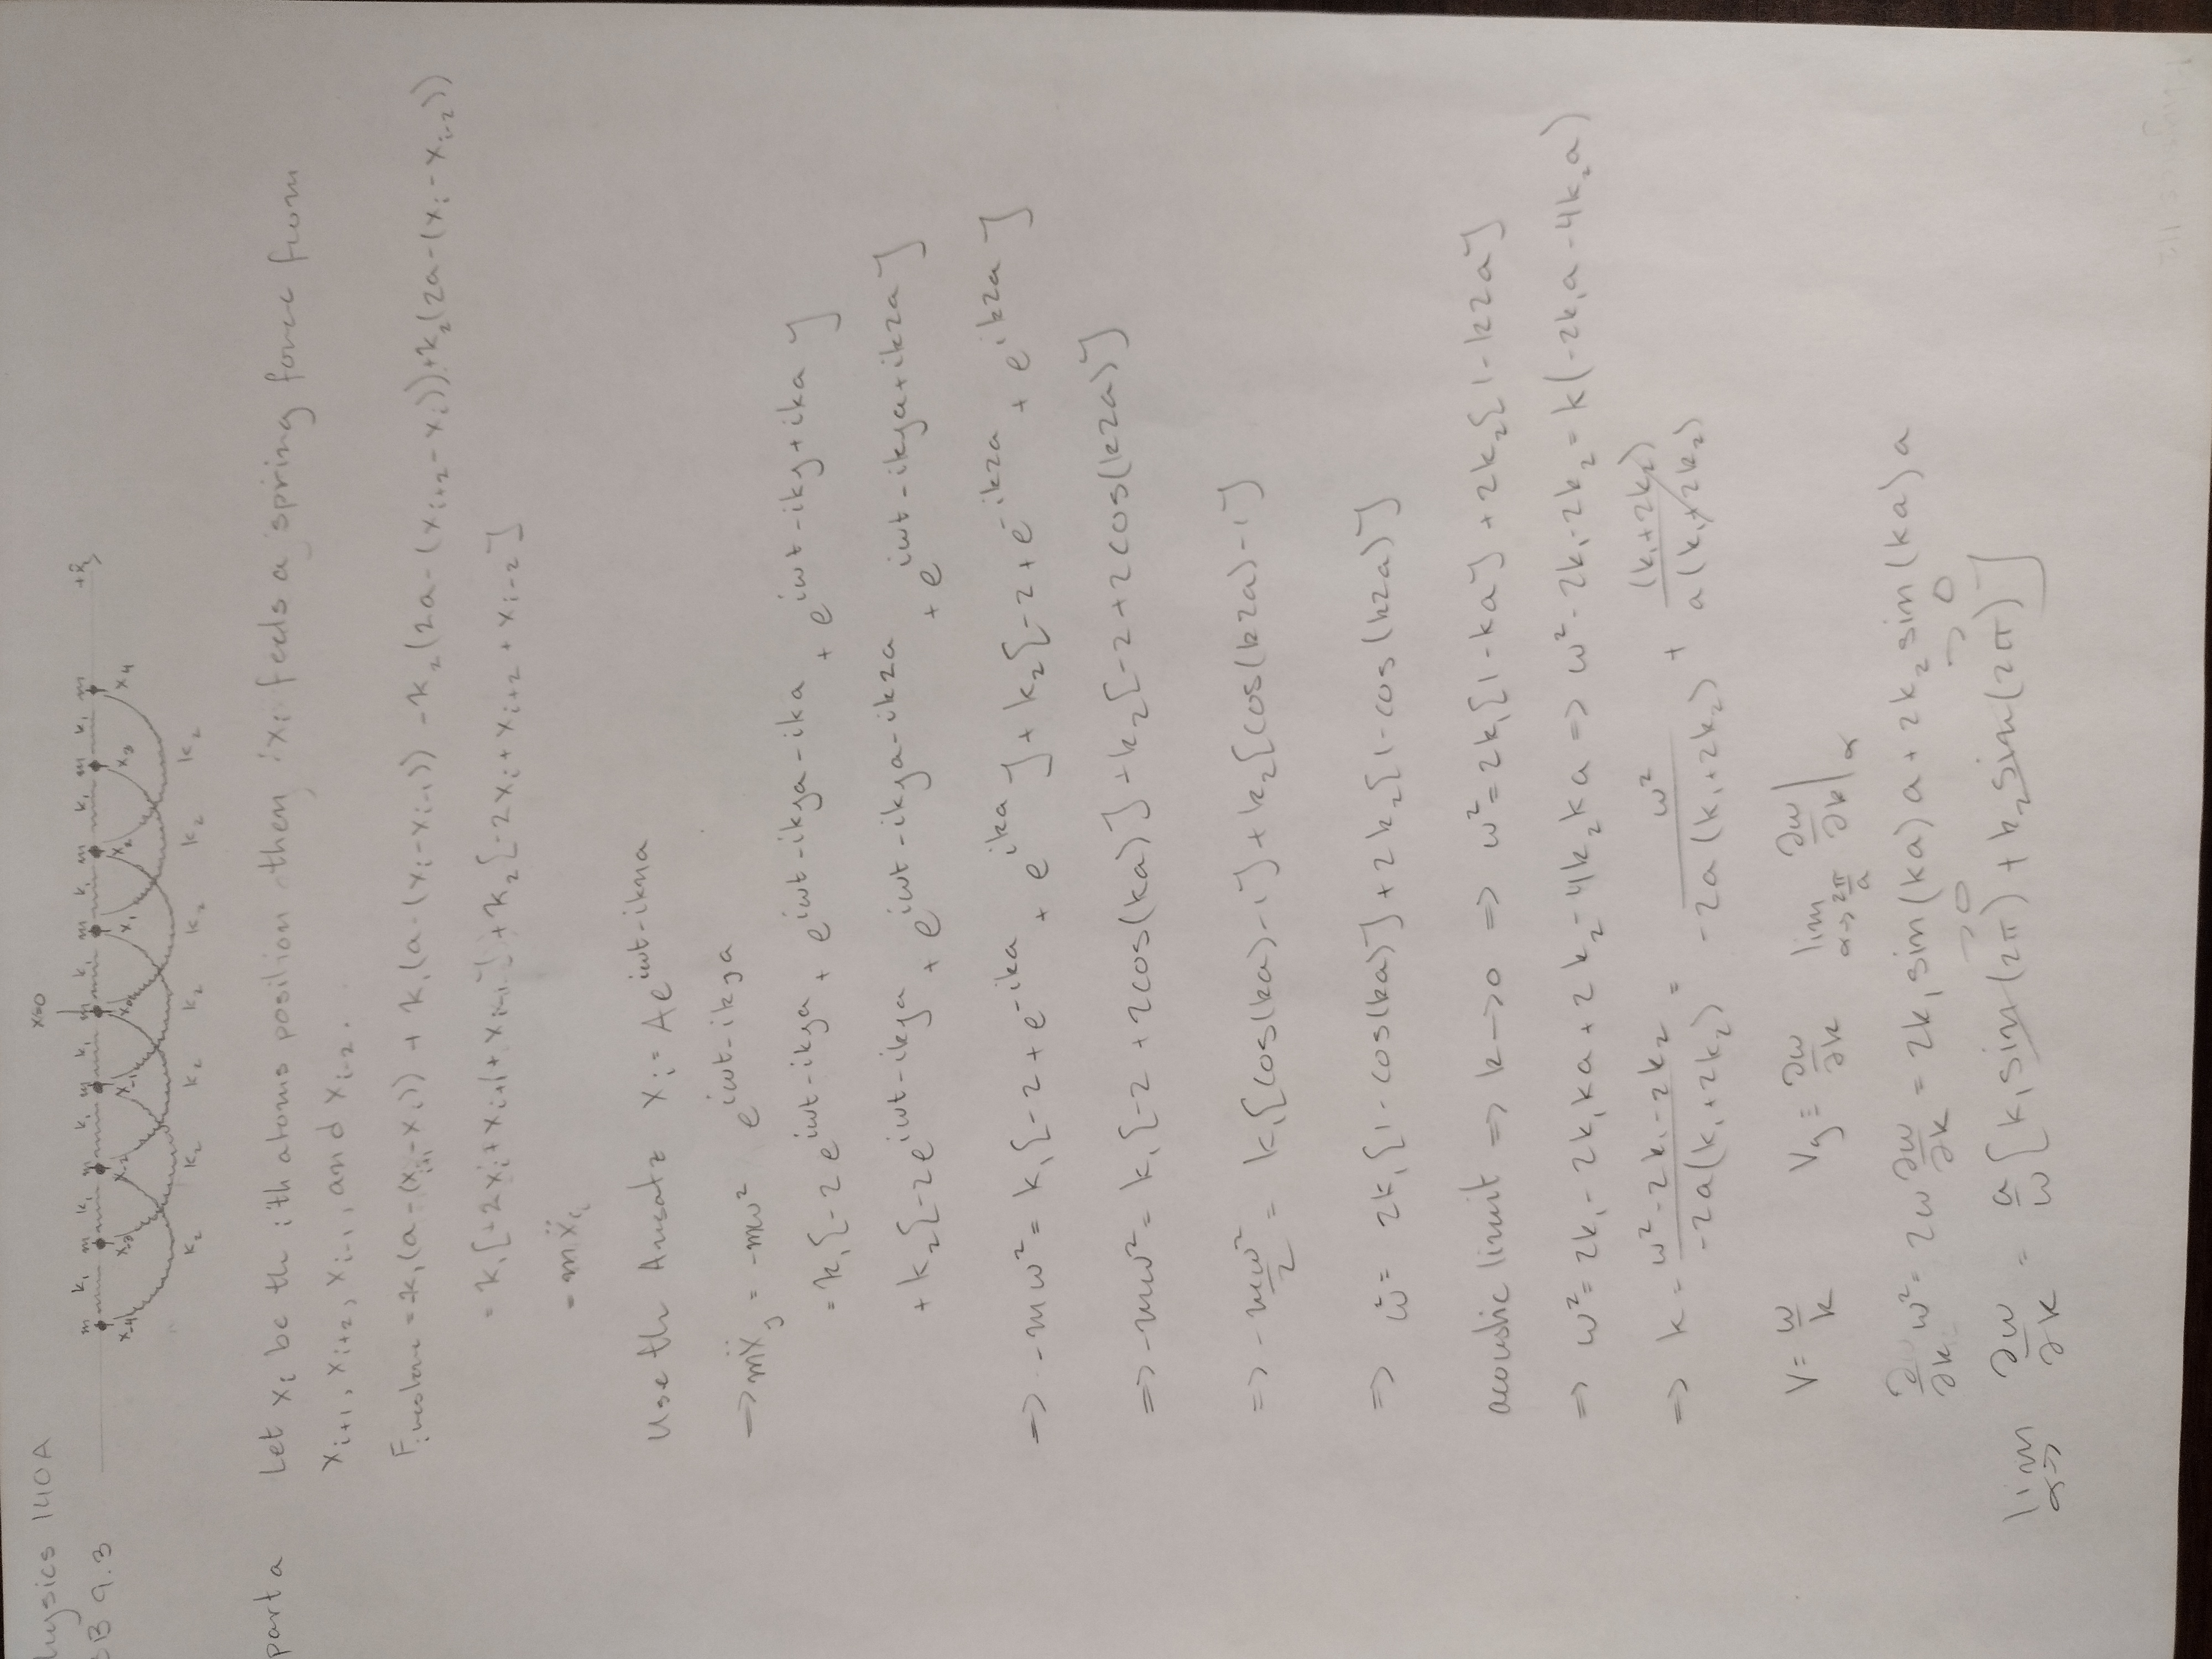 hysics 140A
x=0
B 9.3
m k₁ m k₁ m k₁ m k₁ m k₁ m k₁ m k₁ m k₁ m +x̂
x₋₄ x₋₃ x₋₂ x₋₁ x₀ x₁ x₂ x₃ x₄
k₂ k₂ k₂ k₂ k₂ k₂ k₂
part a Let xᵢ be th ith atoms position then xᵢ feels a spring force from
xᵢ₊₁, xᵢ₊₂, xᵢ₋₁, and xᵢ₋₂.
= k₁(a-(xᵢ₊₁-xᵢ)) + k₁(a-(xᵢ-xᵢ₋₁)) -k₂(2a-(xᵢ₊₂-xᵢ))+k₂(2a-(xᵢ-xᵢ₋₂))
= k₁[-2xᵢ+xᵢ₊₁+xᵢ₋₁] + k₂[-2xᵢ+xᵢ₊₂+xᵢ₋₂]
= mẍᵢ
Use th Ansatz xᵢ = Ae^{iωt-ikna}
=> mẍⱼ = -mω² e^{iωt-ikja}
= k₁[-2e^{iωt-ikja} + e^{iωt-ikja-ika} + e^{iωt-ikj+ika}]
+ k₂[-2e^{iωt-ikja} + e^{iωt-ikja-ik2a} + e^{iωt-ikja+ik2a}]
=> -mω² = k₁[-2+e^{-ika} + e^{ika}] + k₂[-2+e^{-ik2a} + e^{ik2a}]
=> -mω² = k₁[-2+2cos(ka)] + k₂[-2+2cos(k2a)]
=> -mω²/2 = k₁[cos(ka)-1] + k₂[cos(k2a)-1]
=> ω² = 2k₁[1-cos(ka)] + 2k₂[1-cos(k2a)]
acoustic limit => k->0 => ω² = 2k₁[1-ka] + 2k₂[1-k2a]
=> ω² = 2k₁-2k₁ka+2k₂-4k₂ka => ω²-2k₁-2k₂ = k(-2k₁a-4k₂a)
=> k = (ω²-2k₁-2k₂)/(-2a(k₁+2k₂)) = ω²/(-2a(k₁+2k₂)) + (k₁+2k₂)/(a(k₁+2k₂))
V = ω/k Vg ≡ ∂ω/∂k lim_{α->2π/a} ∂ω/∂k|_α
∂/∂k ω² = 2ω ∂ω/∂k = 2k₁sin(ka)a + 2k₂sin(ka)a
->0 ->0
lim_{α->} ∂ω/∂k = a/ω [k₁sin(2π) + k₂sin(2π)]